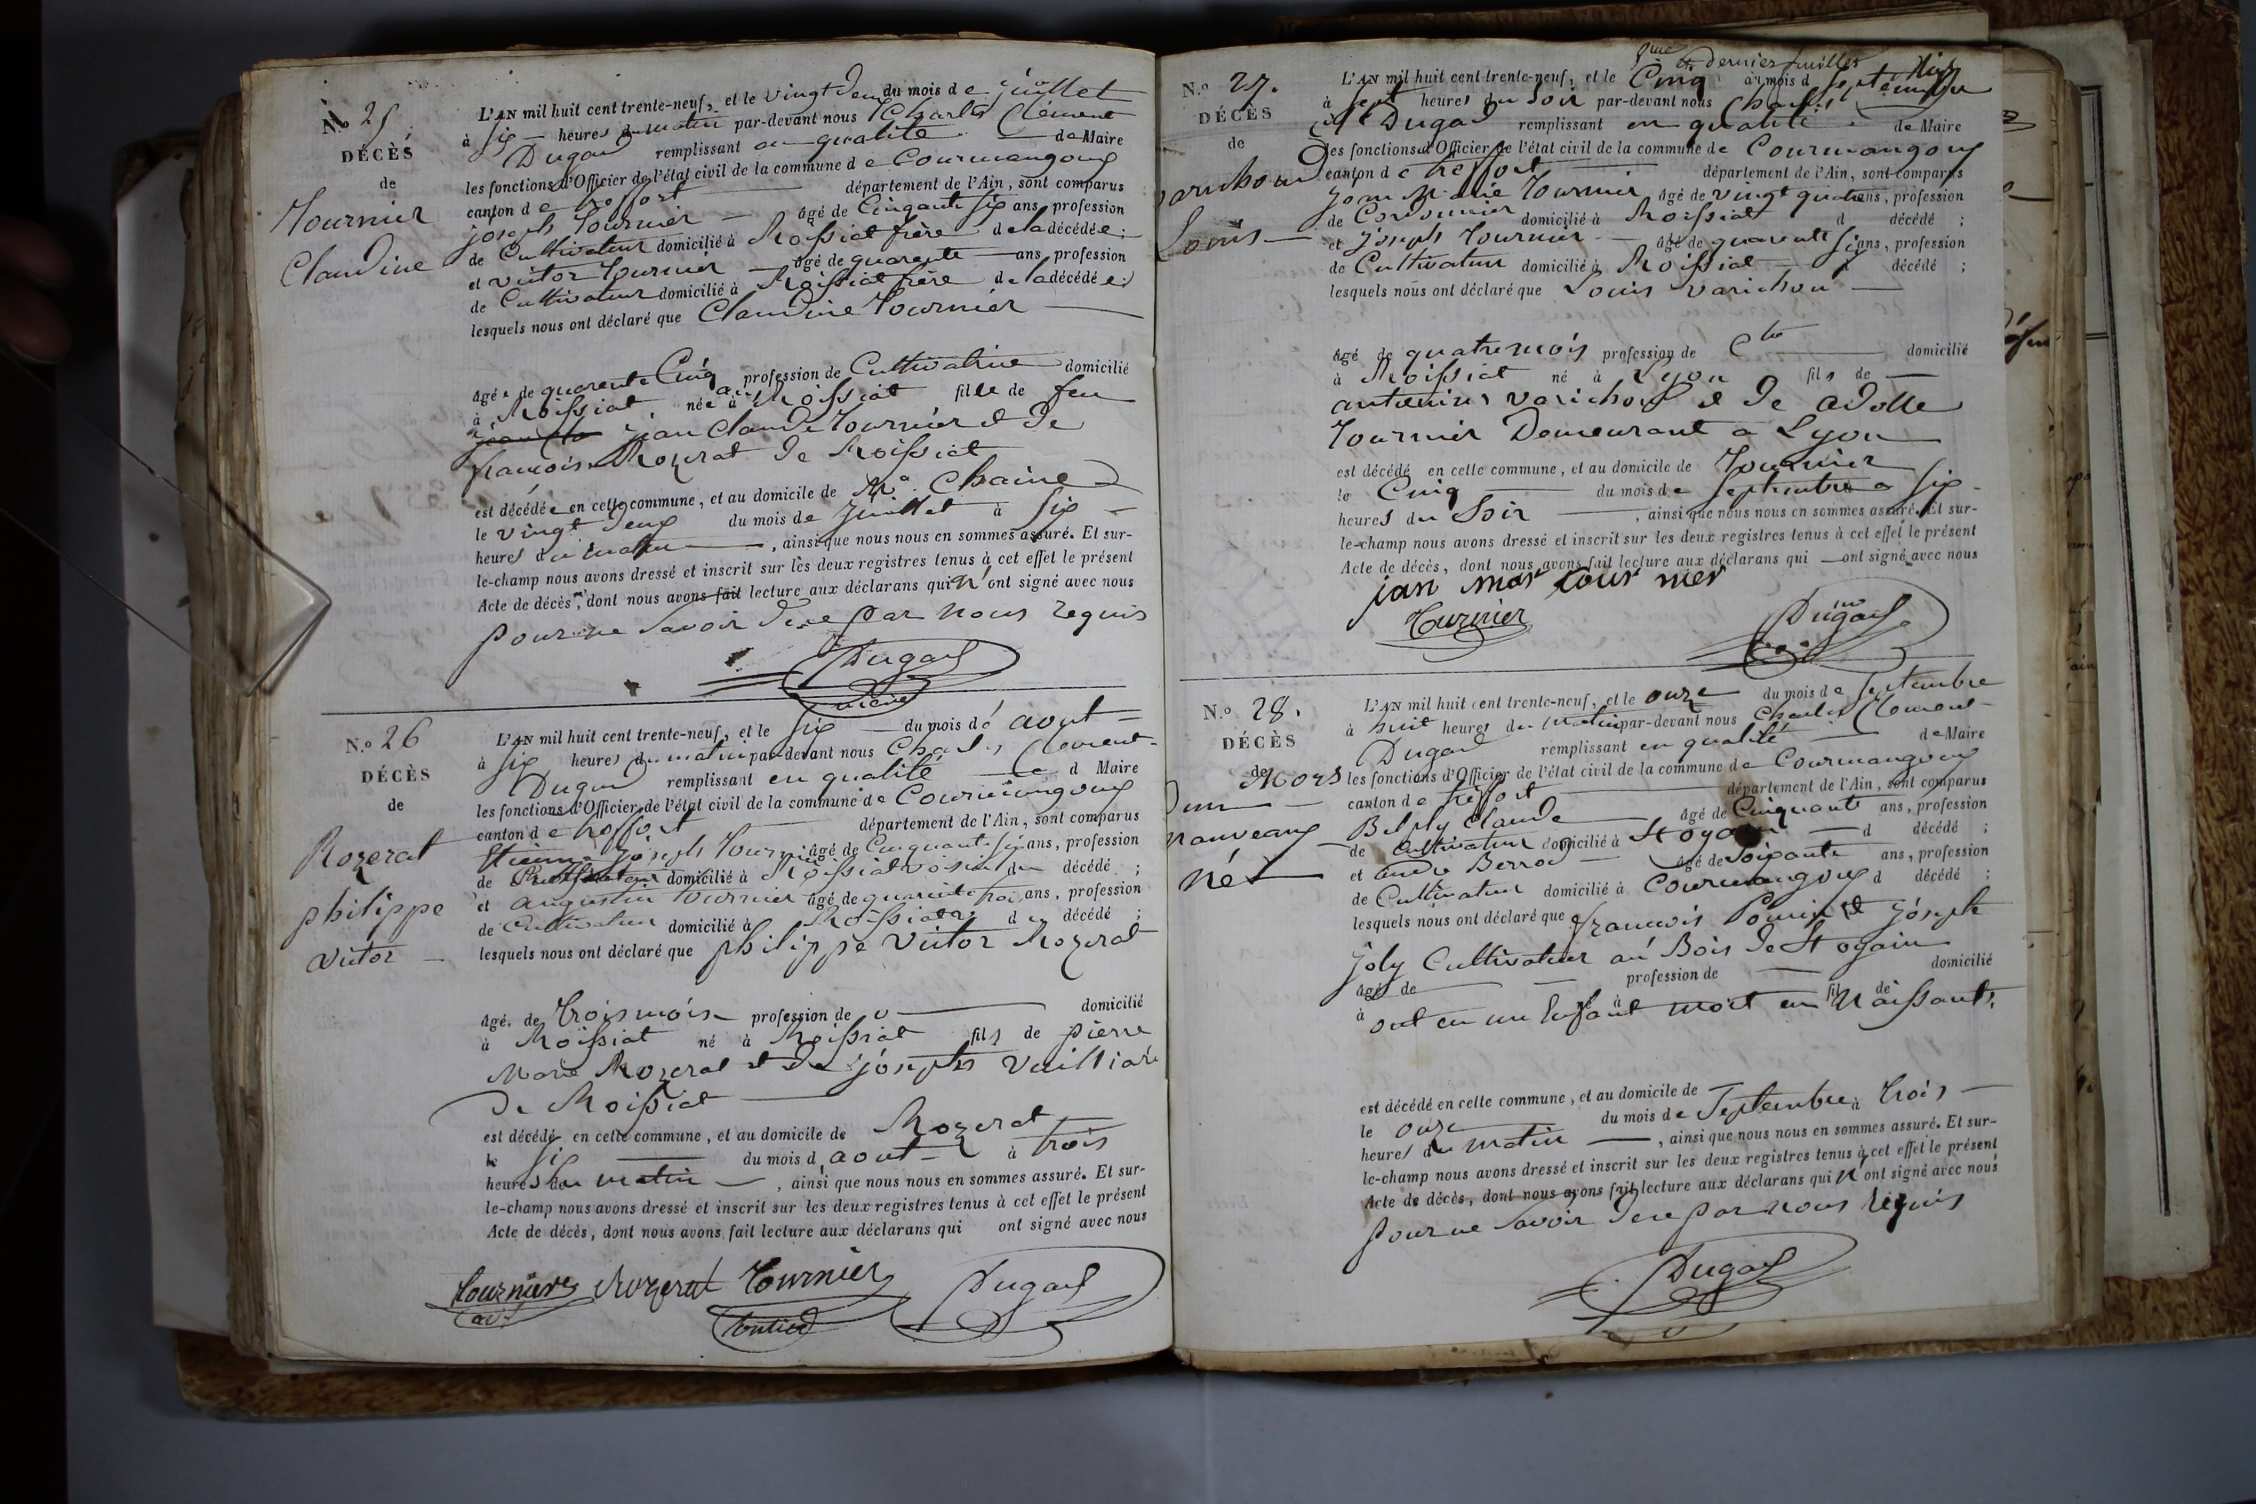 N.º 25,
DÉCÈS
de
Tournier
Claudine
L'AN mil huit cent trente-neuf, et le vingt deux du mois de juillet
à six heures du matin par-devant nous Charles Clément
Dugad remplissant en qualité de Maire
les fonctions d'Officier de l'état civil de la commune de Courmangoux
canton de treffort département de l'Ain, sont comparus
joseph Tournier âgé de Cinquante six ans, profession
de Cultivateur domicilié à Roissiat frère de la décédée;
et victor Tournier âgé de quarante ans, profession
de Cultivateur domicilié à Roissiat frère de la décédée;
lesquels nous ont déclaré que Claudine Tournier
âgée de quarente Cinq ans profession de Cultivatrice domicilié
à Roissiat, née à Roissiat fille de feu
jean Cla jean Claude Tournier et de
francois Rozerat de Roissiat
est décédée en cette commune, et au domicile de Chaine
le vingt deux du mois de juillet à six
heures du matin, ainsi que nous nous en sommes assuré. Et sur-
le-champ nous avons dressé et inscrit sur les deux registres tenus à cet effet le présent
Acte de décès, dont nous avons fait lecture aux déclarans qui n'ont signé avec nous
pour ne savoir de ce par nous requis
Dugad
maire
N.º 26
DÉCÈS
de
Rozerat
philippe
victor
L'AN mil huit cent trente-neuf, et le six du mois de aout
à six heures du matin par-devant nous Charles Clement
Dugad remplissant en qualité de Maire
les fonctions d'Officier de l'état civil de la commune de Courmangoux
canton de treffort département de l'Ain, sont comparus
Etienne joseph Tournier âgé de Cinquante six ans, profession
de domicilié à Roissiat voisin du décédé;
et augustin Tournier âgé de quarante trois ans, profession
de Cultivateur domicilié à Roissiat du décédé;
lesquels nous ont déclaré que philippe victor Rozerat
âgé de trois mois profession de domicilié
à Roissiat né à Roissiat fils de pierre
Marie Rozerat et de josephte
de Roissiat
est décédé en cette commune, et au domicile de Rozerat
le six du mois d'aout à trois
heures du matin, ainsi que nous nous en sommes assuré. Et sur-
le-champ nous avons dressé et inscrit sur les deux registres tenus à cet effet le présent
Acte de décès, dont nous avons fait lecture aux déclarans qui ont signé avec nous
Rozerat Tournier Dugad
N.º 27.
DÉCÈS
de
varichoud
Louis
dernier feuillet
L'AN mil huit cent trente-neuf, et le Cinq du mois de septembre
à sept heures du Soir par-devant nous Charles
Dugad remplissant en qualité de Maire
les fonctions d'Officier de l'état civil de la commune de Courmangoux
canton de treffort département de l'Ain, sont comparus
jean Marie Tournier âgé de vingt quatre ans, profession
de Cordonnier domicilié à Roissiat d décédé;
et joseph Tournier âgé de quarente six ans, profession
de Cultivateur domicilié à Roissiat d décédé;
lesquels nous ont déclaré que Louis varichou
âgé de quatre mois profession de domicilié
à Roissiat né à Lyon fils de
varichoud et de
Tournier Demeurant a Lyon
est décédé en cette commune, et au domicile de Tournier
le Cinq du mois de septembre à six
heures du Soir, ainsi que nous nous en sommes assuré. Et sur-
le-champ nous avons dressé et inscrit sur les deux registres tenus à cet effet le présent
Acte de décès, dont nous avons fait lecture aux déclarans qui ont signé avec nous
jan mar tour nier
Turnier Dugad
N.º 28.
DÉCÈS
de Mors
D'un
nauveaux
né
L'AN mil huit cent trente-neuf, et le onze du mois de septembre
à huit heures du matin par-devant nous Charles Clement
Dugad remplissant en qualité de Maire
les fonctions d'Officier de l'état civil de la commune de Courmangoux
canton de treffort département de l'Ain, sont comparus
Claude âgé de Cinquante ans, profession
de Cultivateur domicilié à St oyain d décédé;
et andré Berrod âgé de soixante ans, profession
de Cultivateur domicilié à Courmangoux d décédé;
lesquels nous ont déclaré que francois et joseph
joly Cultivateur au Bois de St oyain
âgé de profession de domicilié
à né à fil de
ont eu un Enfant mort en naissant,
est décédé en cette commune, et au domicile de
le onze du mois de Septembre à trois
heures du matin, ainsi que nous nous en sommes assuré. Et sur-
le-champ nous avons dressé et inscrit sur les deux registres tenus à cet effet le présent
Acte de décès, dont nous avons fait lecture aux déclarans qui n'ont signé avec nous
pour ne savoir de ce par nous requis
Dugad